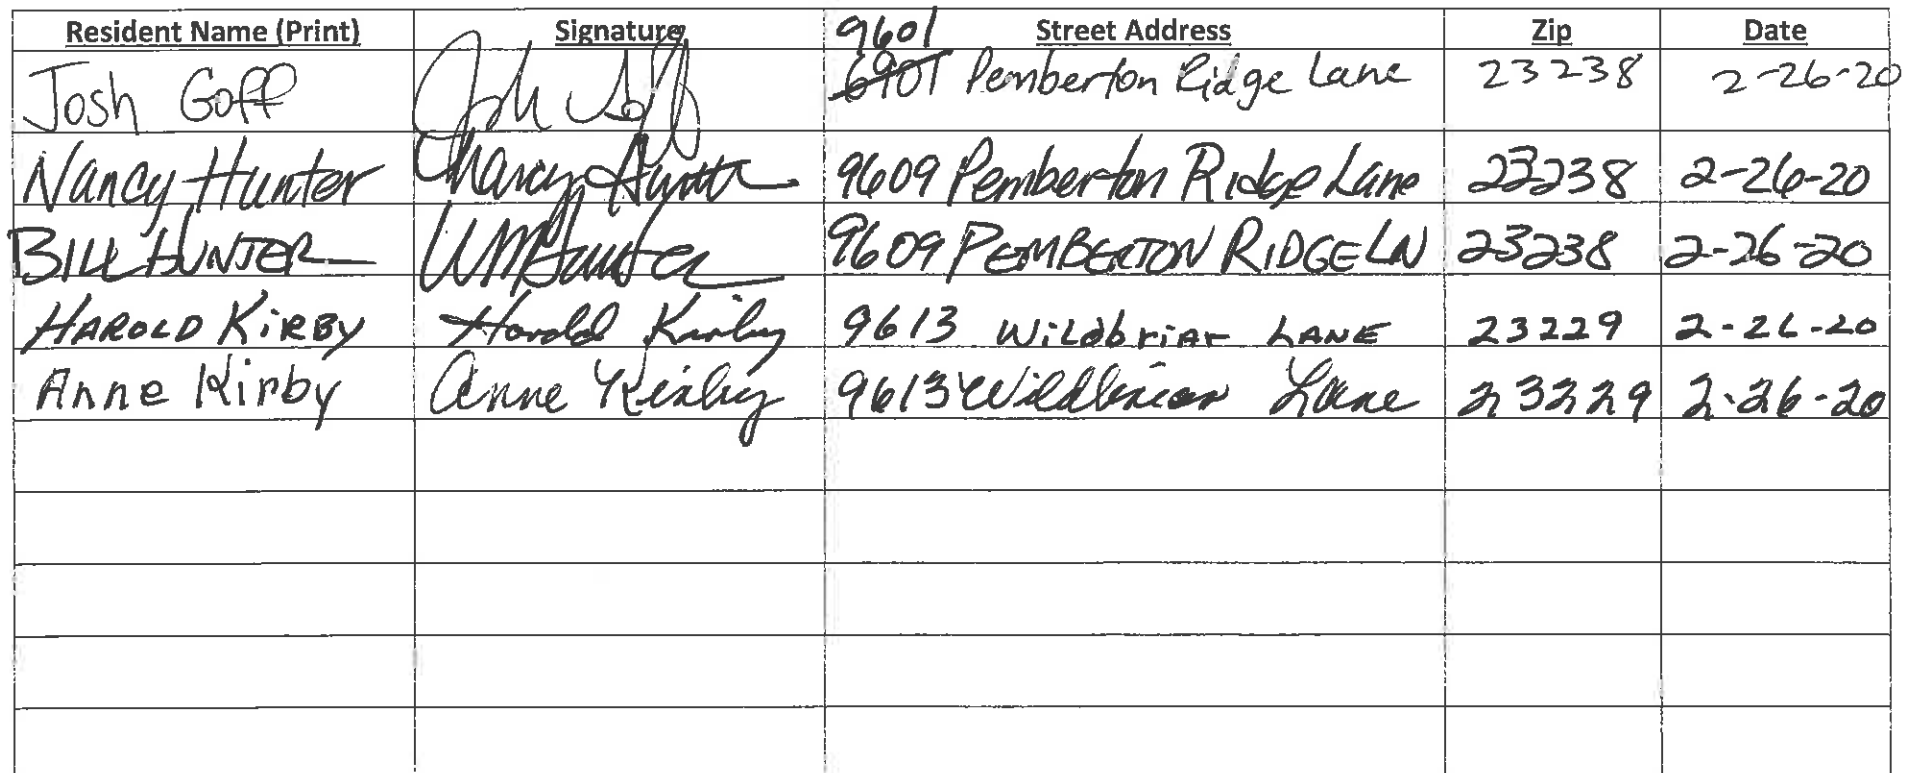 Resident Name (Print) Signature Street Address Zip Date
9601
Josh Goff Josh Goff 6901 Pemberton Ridge Lane 23238 2-26-20
Nancy Hunter Nancy Hunter 9609 Pemberton Ridge Lane 23238 2-26-20
BILL HUNTER Wm Hunter 9609 PEMBERTON RIDGE LN 23238 2-26-20
HAROLD KiRBY Harold Kirby 9613 WiLdbriar LANE 23229 2-26-20
Anne Kirby Anne Kirby 9613 Wildbriar Lane 23229 2-26-20